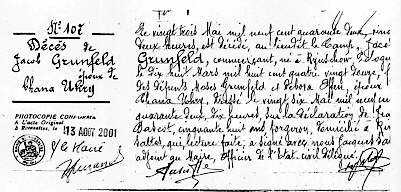 N° 107
Décès de
Jacob Grunfeld
époux de
Chana Ukry
PHOTOCOPIE CONFORME
A L'Acte Original
à Rivesaltes, le 13 AOUT 2001
Le Maire
Le vingt trois Mai mil neuf cent quarante deux, cinq
deux heures, est décédé, au lieudit le Camp, Jacob
Grunfeld, commerçant, né à
le dix huit Mars mil huit cent quatre vingt douze, fils
des défunts Moses Grunfeld et Debora, époux
Chana Ukry. Dressé le vingt six Mai mil neuf cent
quarante deux, dix heures, sur la déclaration de
cinquante huit ans, forgeron, domicilié à Rive
saltes, qui, lecture faite, a signé avec nous Jacques
adjoint au Maire, Officier de l'Etat civil délégué.